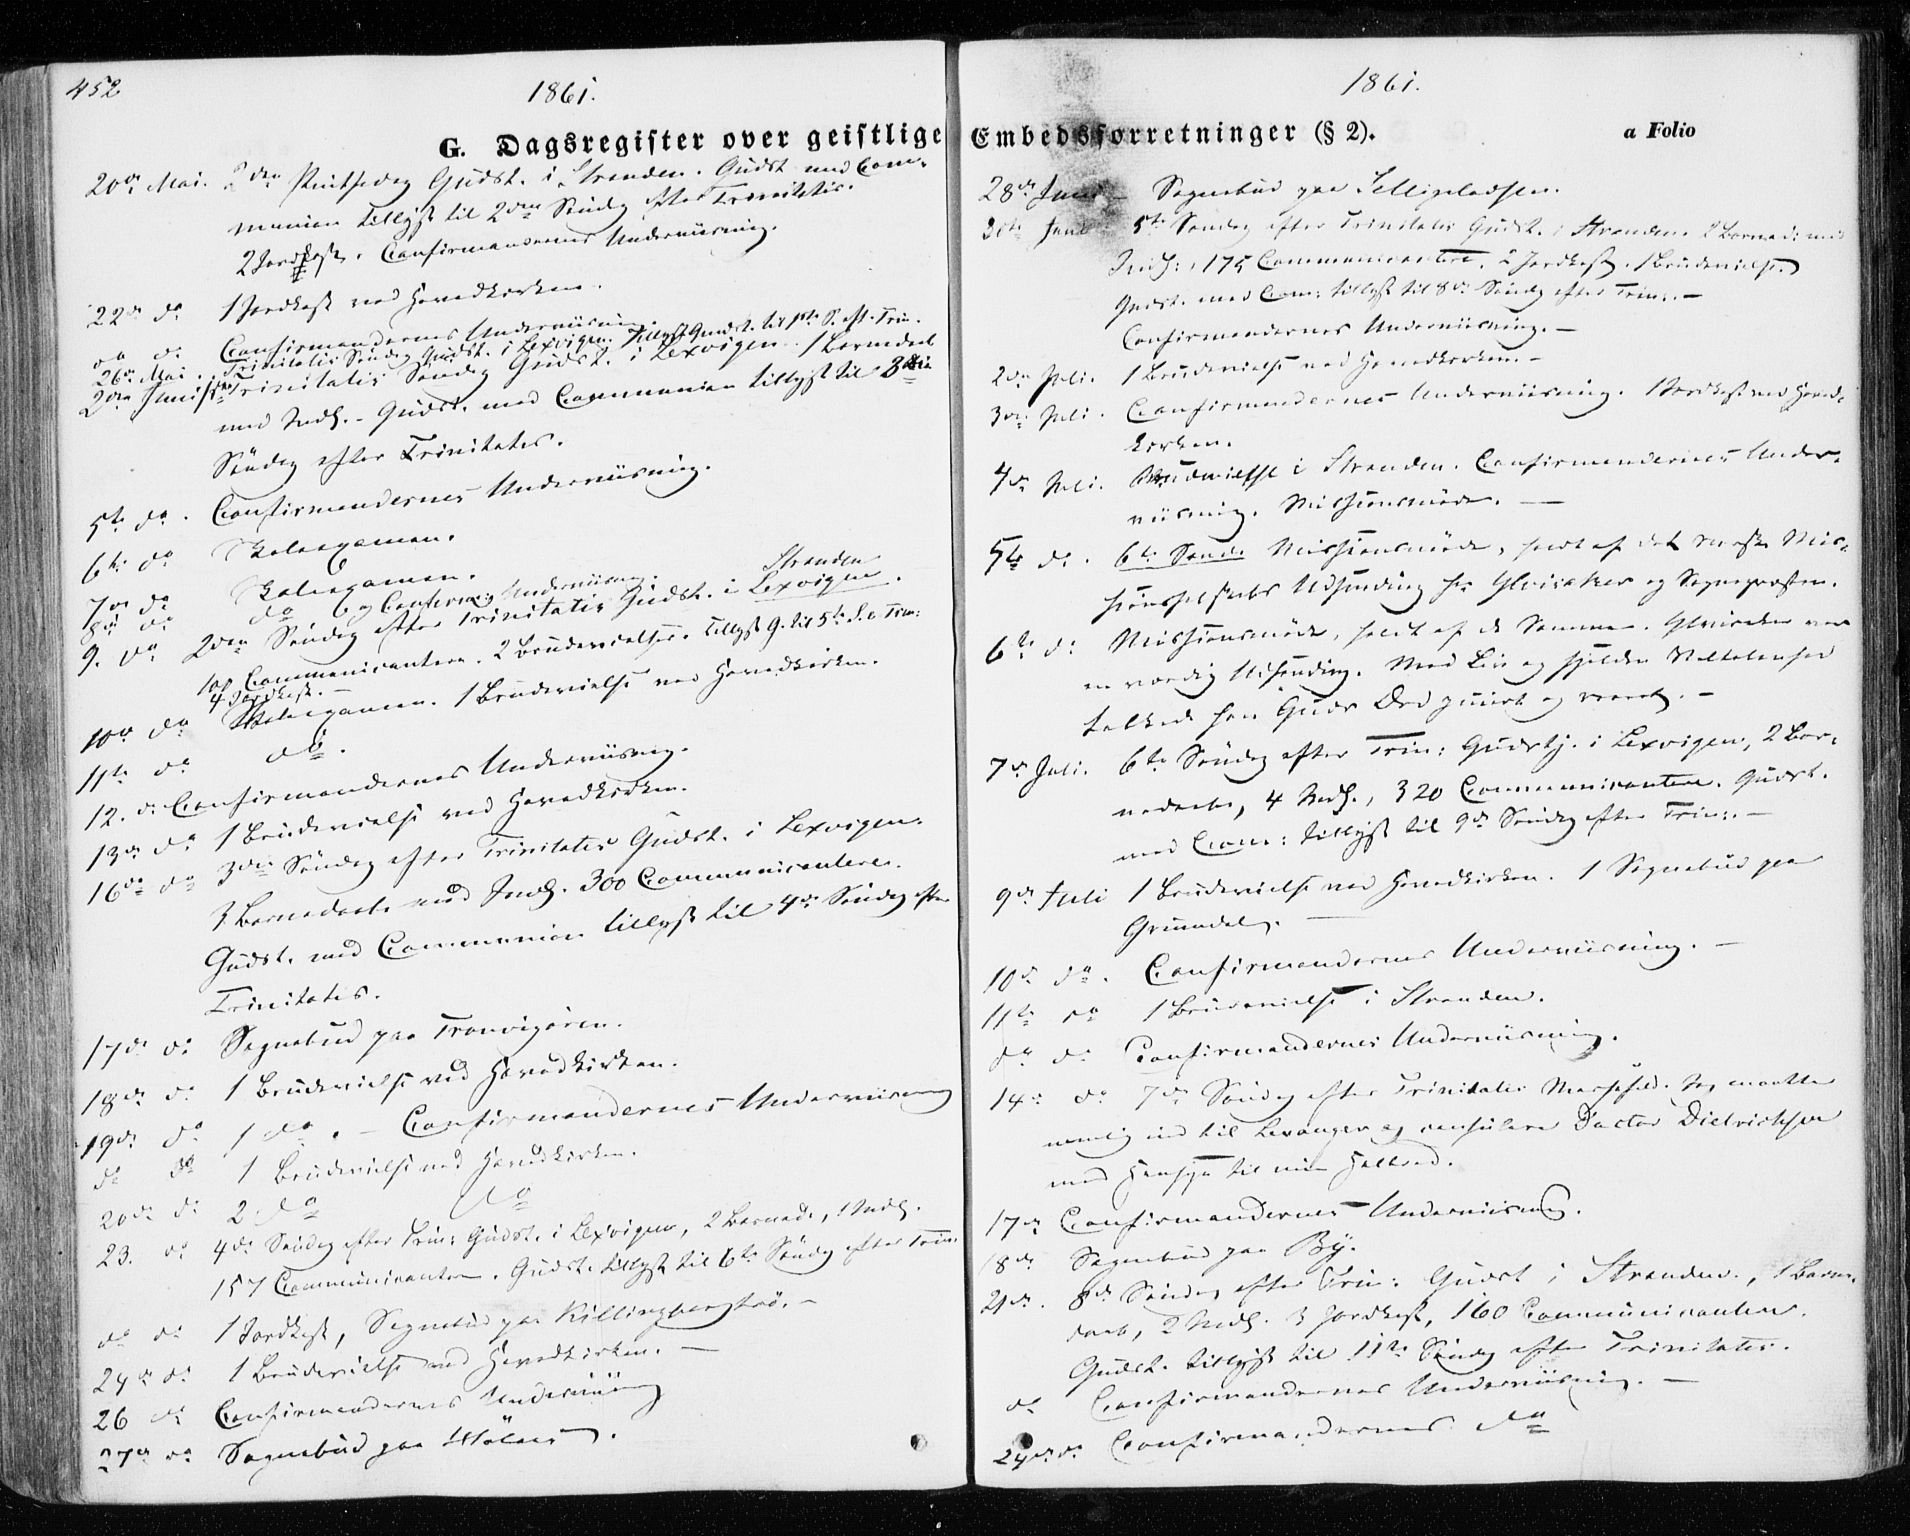 452
1861.
G. Dagsregister over geistlige
20de Mai. 2den Pintsedag Gudst. i Stranden. Gudst. med Com-
munion tillyst til 2den Søndag efter Trinitatis.
2 Jordkast. Confirmandernes Underviisning.
22de do 1 Jordkast ved Hovedkirken.
do do Confirmandernes Underviisning.
26de Mai. Trinitatis Søndag Gudst. i Lexvigen. Tillyst Gudst. til 1ste S. eft. Trin.
2den Juni 1ste Trinitatis Søndag Gudst. i Lexvigen. 1 Barnedaab
med Indl. - Gudst. med Communion tillyst til 3die
Søndag efter Trinitatis.
5te do. Confirmandernes Underviisning.
6te do Skoleexamen.
7de do Skoleexamen.
8de do do og Confirm. Underviisning.
Stranden
9. do 2den Søndag efter Trinitatis Gudst. i Lexvigen.
Communicantere. 2 Brudevielser. Tillyst G. til 5te S. e. Trin:
4 Jordkast. -
10de do Skoleexamen. 1 Brudevielse ved Hovedkirken.
11te do do.
12. do Confirmandernes Underviisning.
13de do 1 Brudevielse ved Hovedkirken.
16de do 3die Søndag efter Trinitatis Gudst. i Lexvigen.
3 Barnedaab med Indl. 300 Communicantere.
Gudst. med Communion tillyst til 4de Søndag efter
Trinitatis.
17de do Sognebud paa Tronvigøren.
18de do 1 Brudevielse ved Hovedkirken.
19de do 1 do. - Confirmandernes Underviisning
do do 1 Brudevielse ved Hovedkirken.
20de do 2 do do
23. do 4de Søndag efter Trin: Gudst. i Lexvigen, 2 Barned., 1 Indl.
157 Communicantere. Gudst. tillyst til 6te Søndag efter Trin:
do do 1 Jordkast, Sognebud paa Killingbergtrø. -
24de do 1 Brudevielse ved Hovedkirken. -
26 do Confirmandernes Underviisning
27de do Sognebud paa
1861.
Embedsforretninger (§ 2).
a Folio
28de Juni - Sognebud paa
30te Juni 5te Søndag efter Trinitatis Gudst. i Stranden. 2 Barned: med
Indl:, 175 Communicantere. 2 Jordkast. 1 Brudevielse.
Gudst. med Com: tillyst til 8de Søndag efter Trin:. -
Confirmandernes Underviisning. -
2den Juli. 1 Brudevielse ved Hovedkirken. -
3die Juli. Confirmandernes Underviisning. 1 Jordkast ved Hoved-
kirken.
4de Juli. Brudevielse i Stranden. Confirmandernes Under-
viisning. Missionsmøde. -
5te do. 6te Sønd. Missionsmøde, holdt af det norske Mis-
sionsselskabs Udsending Hr. og Sognepresten.
6te do Missionsmøde, holdt af de Samme. var
en værdig Udsending. Med Liv og sjelden Veltalenhed
tolkede han Guds Ord puurt og reent. -
7de Juli. 6te Søndag efter Trin: Gudstj. i Lexvigen, 2 Bar-
nedaab, 4 Indl., 320 Communicantere. Gudst.
med Com: tillyst til 9de Søndag efter Trin:. -
9de Juli 1 Brudevielse ved Hovedkirken. 1 Sognebud paa
Grundal. -
10de do. Confirmandernes Underviisning. -
11te do 1 Brudevielse i Stranden.
do do Confirmandernes Underviisning.
14de do 7de Søndag efter Trinitatis Messefald. Jeg maatte
nemlig ind til Levanger og consulere Doctor Dietrichson
med Hensyn til min Helbred.
17de Confirmandernes Underviisning.
18de Sognebud paa By.
21de. 8de Søndag efter Trin: Gudst i Stranden., 1 Barne-
daab, 2 Indl. 3 Jordkast, 160 Communicantere.
Gudst. tillyst til 11te Søndag efter Trinitatis.
do Confirmandernes Underviisning. -
24de do Confirmandernes do